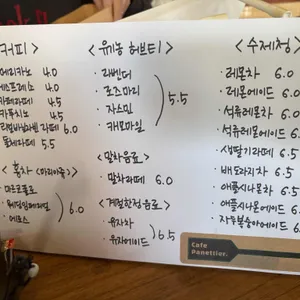 커피 >
아메리카노 4.0
에스프레소 4.0
카페라떼 4.5
카푸치노 4.5
리얼바닐라빈라떼 6.0
돌체라떼 5.5
< 홍차 <마리아쥬>
마르코폴로
웨딩임페리얼
에로스
6.0
< 유기농 허브티 >
· 라벤더
· 로즈마리
· 자스민
· 캐모마일
5.5
< 말차음료 >
· 말차라떼 6.0
< 계절한정음료 >
· 유자차
· 유자에이드
6.5
< 수제청 >
· 레몬차 6.0
· 레몬에이드 6.
· 석류레몬차 6.
· 석류레몬에이드 6
· 생딸기라떼 6.
· 배도라지차 6.
· 애플시나몬차 6.5
· 애플시나몬에이드 6.
· 자두복숭아에이드 6
Cafe
Panettier.